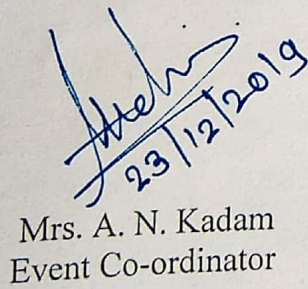 23/12/2019
Mrs. A. N. Kadam
Event Co-ordinator